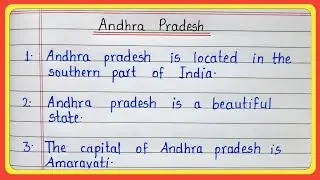 Andhra Pradesh
1. Andhra pradesh is located in the
southern part of India.
2. Andhra pradesh is a beautiful
state.
3. The capital of Andhra pradesh is
Amaravati.